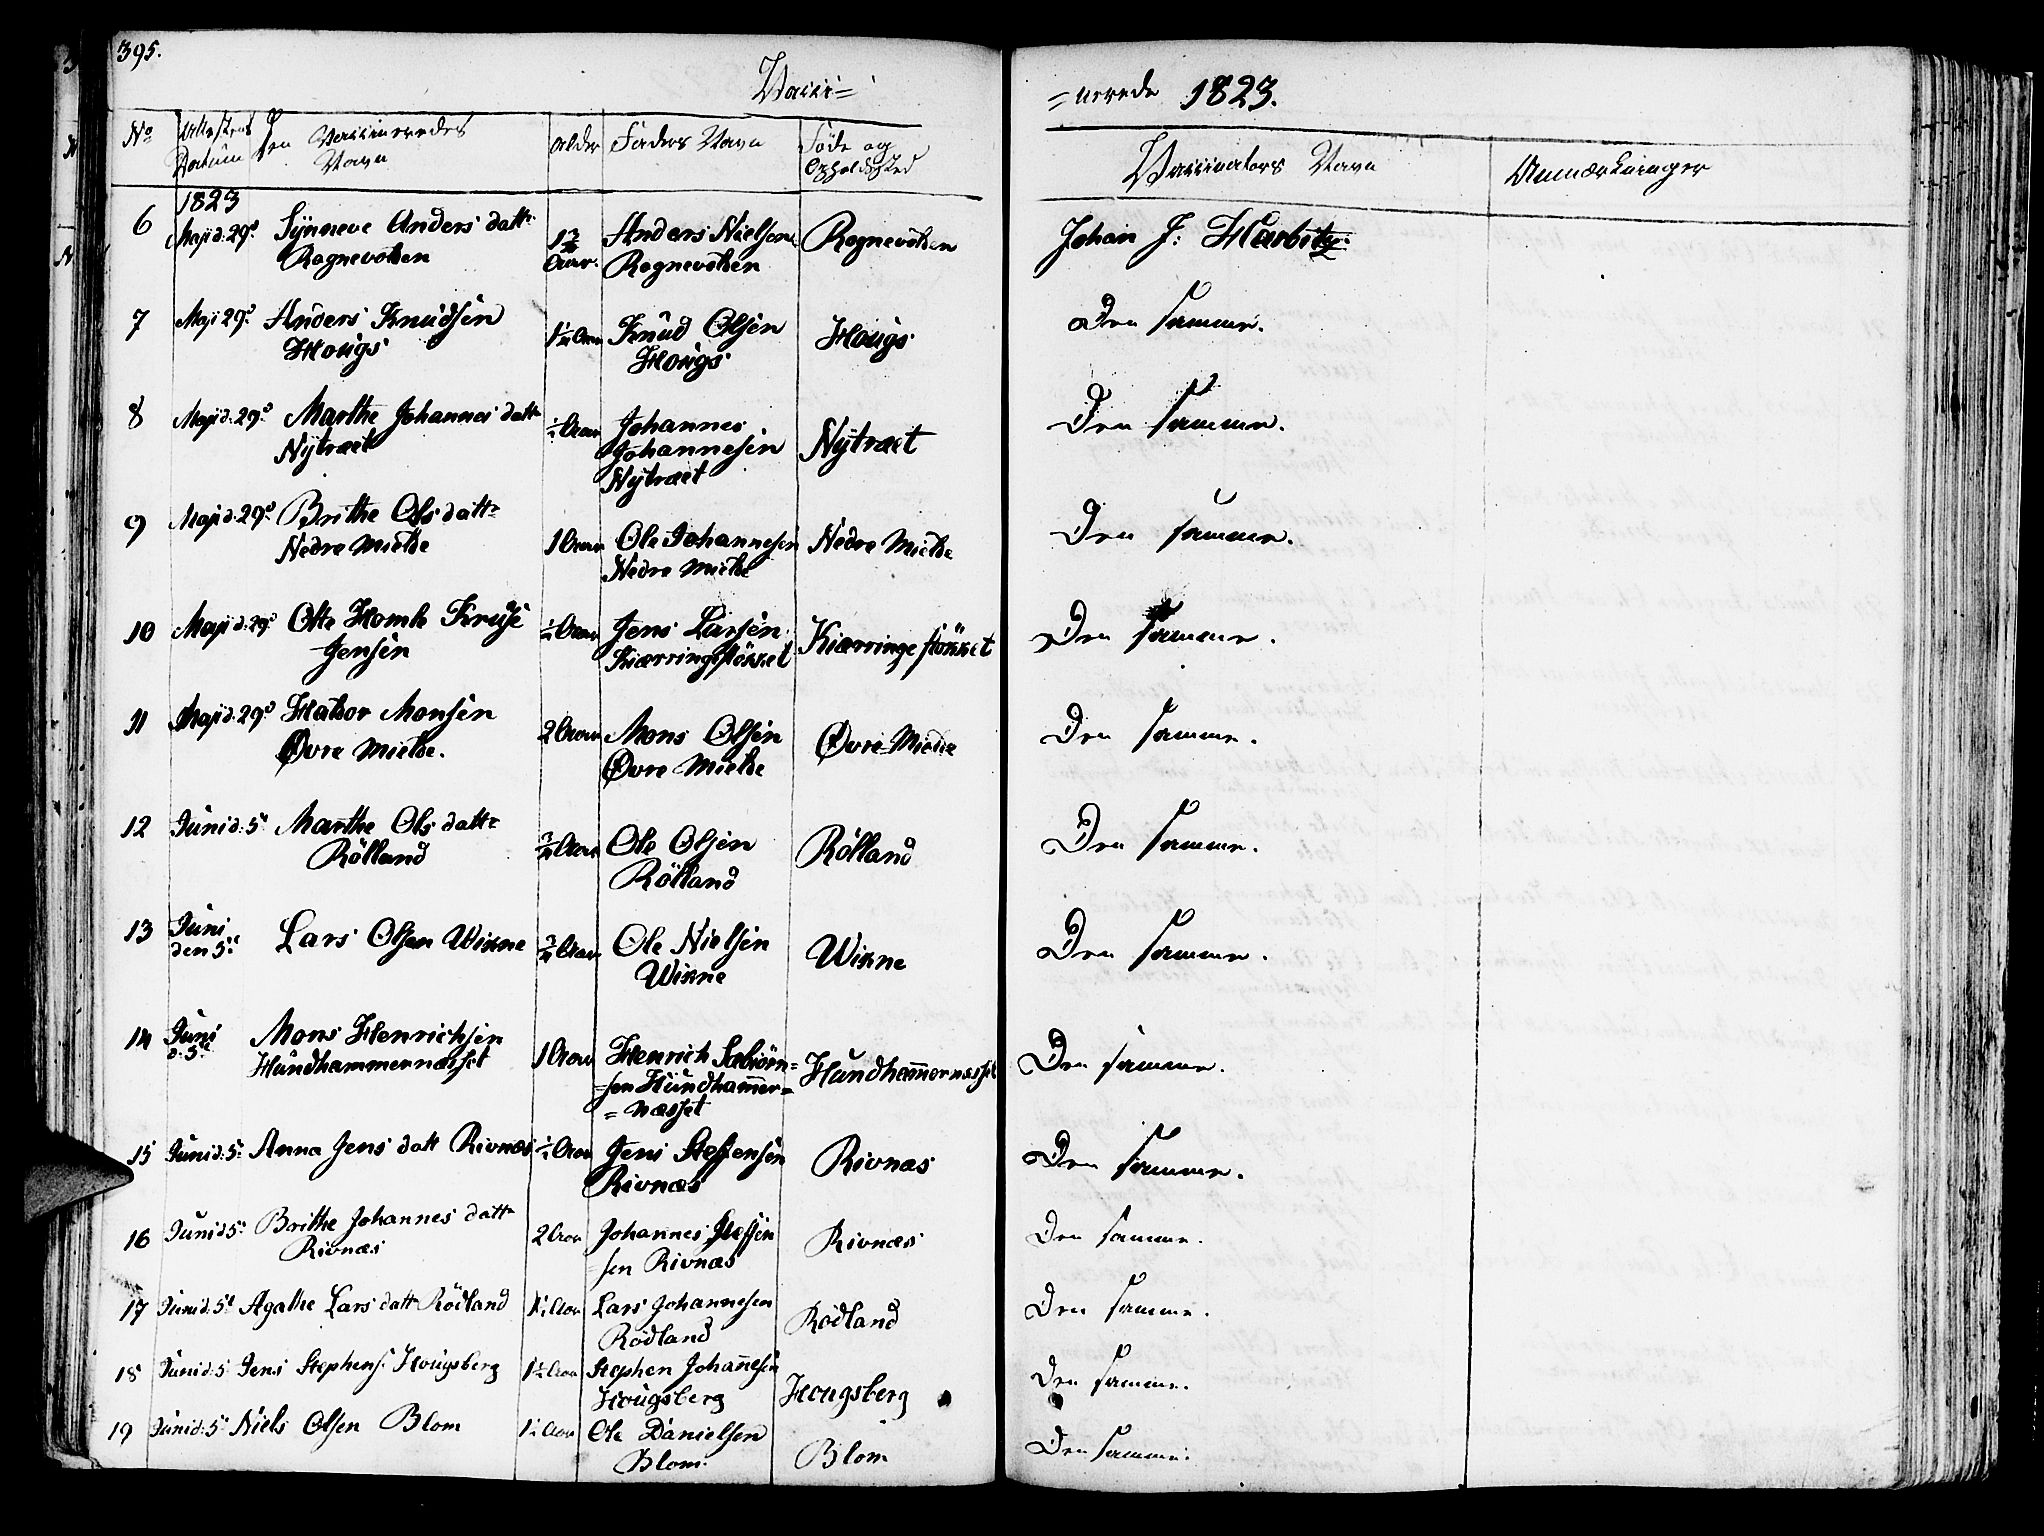 395.
Vacci=
=nerede 1823.
No Attestens Datum Den Vaccineredes Navn Alder Faders Navn Føde og Opholdsted Vaccinators Navn Anmærkninger
1823
6 Maji d: 29d Synneve Anders datter Rognevolden Aar. Anders Nielsen Rognevolden Rognevolden Johan J: Harbitz.
7 Maji 29d Anders Knudsen Hougs 1½ Aar Knud Olsen Hougs Hougs Den samme.
8 Maji d: 29d Marthe Johannes datter Nÿtræet ½ Aar Johannes Johannesen Nÿtræet Nÿtræet Den samme.
9 Maji d: 29d Brithe Ols datter Nedre Mielde 1 Aar Ole Johannesen Nedre Mielde Nedre Mielde Den samme.
10 Maji d: 29d Otte Homb Kruse Jensen ½ Aar Jens Larsen Kiærringestökket Kiærringestökket Den samme.
11 Maji d: 29d Haldor Monsen Øvre Mielde. 2 Aar Mons Olsen Øvre Mielde Øvre Mielde Den samme.
12 Juni d: 5te Marthe Ols datter Rölland Aar Ole Olsen Rölland Rölland Den samme.
13 Juni den 5te Lars Olsen Wikne Aar Ole Nielsen Wikne Wikne Den samme.
14 Juni d: 5te Mons Henrichsen Hundhammernæsset 1 Aar Henrich =sen Hundham̄er= =næsset Hundham̄ernæsset Den samme.
15 Juni d: 5te Anna Jens datt Rivnæs ½ Aar Jens Steffensen Rivnæs Rivnæs Den samme.
16 Juni d 5te Brithe Johannes datter Rivnæs 2 Aar Johannes Steffen =sen Rivnæs Rivnæs Den samme.
17 Juni d: 5te Agathe Lars datt Rödland Aar Lars Johannesen Rödland Rödland Den samme.
18 Juni d: 5 Jens Stephens: Hougsberg 1½ Aar Stephen Johan̄esen Hougsberg Hougsberg Den samme.
19 Juni d: 5te Niels Olsen Blom Aar Ole Danielsen Blom. Blom Den samme.